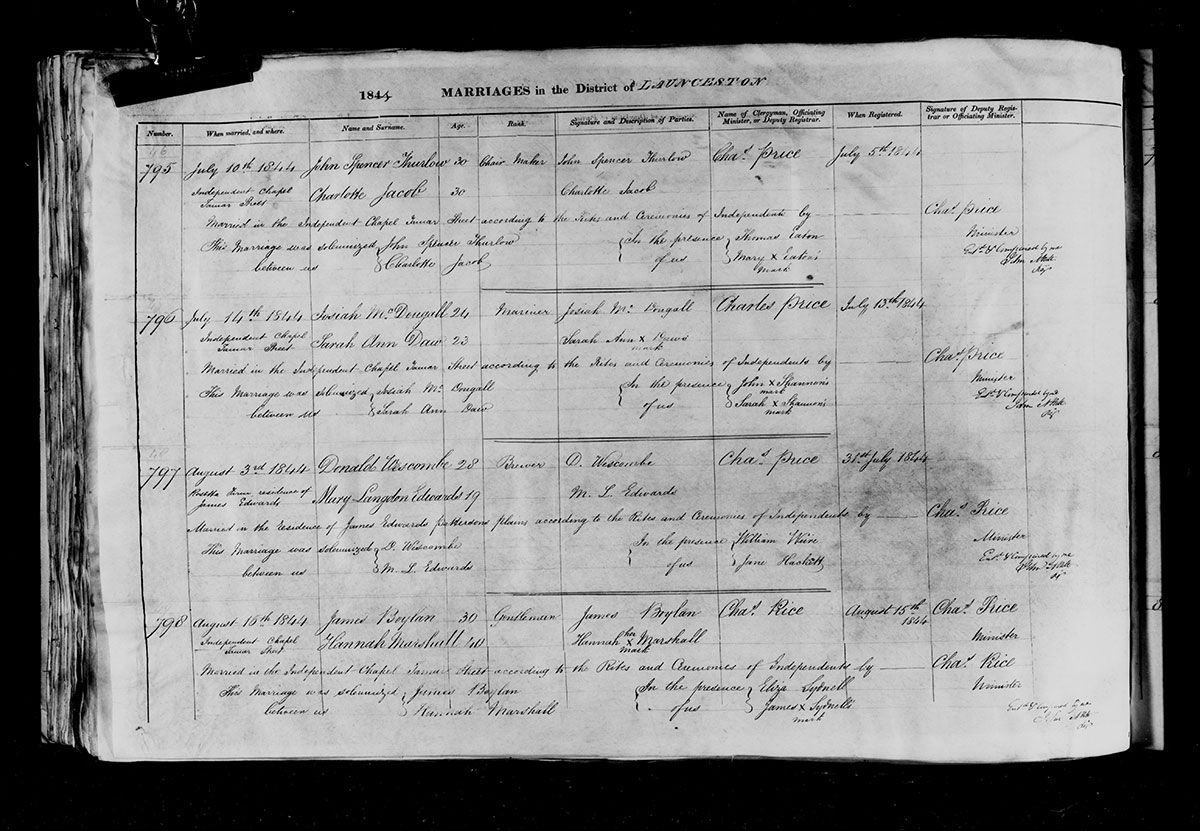 1844 MARRIAGES in the District of LAUNCESTON
Number. When married, and where. Name and Surname. Age. Rank. Signature and Description of Parties. Name of Clergyman, Officiating Minister, or Deputy Registrar. When Registered. Signature of Deputy Registrar or Officiating Minister.
795 July 10th 1844 John Spencer Thurlow 30 Chair Maker John Spencer Thurlow Chas. Price July 5th 1844
Independent Chapel Tamar Street Charlotte Jacob 30 Charlotte Jacob
Married in the Independent Chapel Tamar Street according to the Rites and Ceremonies of Independents by Chas. Price
This Marriage was solemnized John Spencer Thurlow In the presence Thomas Eaton Minister
between us Charlotte Jacob of us Mary X Eaton's
mark
796 July 14th 1844 Josiah Mc Dougall 24 Mariner Josiah Mc Dougall Charles Price July 13th 1844
Independent Chapel Tamar Street Sarah Ann Daw 23 Sarah Ann X Daw's
mark
Married in the Independent Chapel Tamar Street according to the Rites and Ceremonies of Independents by Chas. Price
This Marriage was solemnized Josiah Mc Dougall In the presence John X Shannon's Minister
mark
between us Sarah Ann Daw of us Sarah X Shannon's
mark
797 August 3rd 1844 Donald Wescombe 28 Brewer D. Wescombe Chas. Price 31st July 1844
residence of James Edwards Mary Langdon Edwards 19 M. L. Edwards
Married in the residence of James Edwards Pattersons plains according to the Rites and Ceremonies of Independents by Chas. Price
This Marriage was solemnized D. Wescombe In the presence William Minister
between us M. L. Edwards of us Jane Hackett
798 August 16th 1844 James Boylan 30 Gentleman James Boylan Chas. Price August 15th 1844 Chas. Price
Independent Chapel Tamar Street Hannah Marshall 40 Hannah her X mark Marshall Minister
Married in the Independent Chapel Tamar Street according to the Rites and Ceremonies of Independents by Chas. Price
This Marriage was solemnized James Boylan In the presence Eliza Sydnell Minister
between us Hannah Marshall of us James X Sydnell's
mark